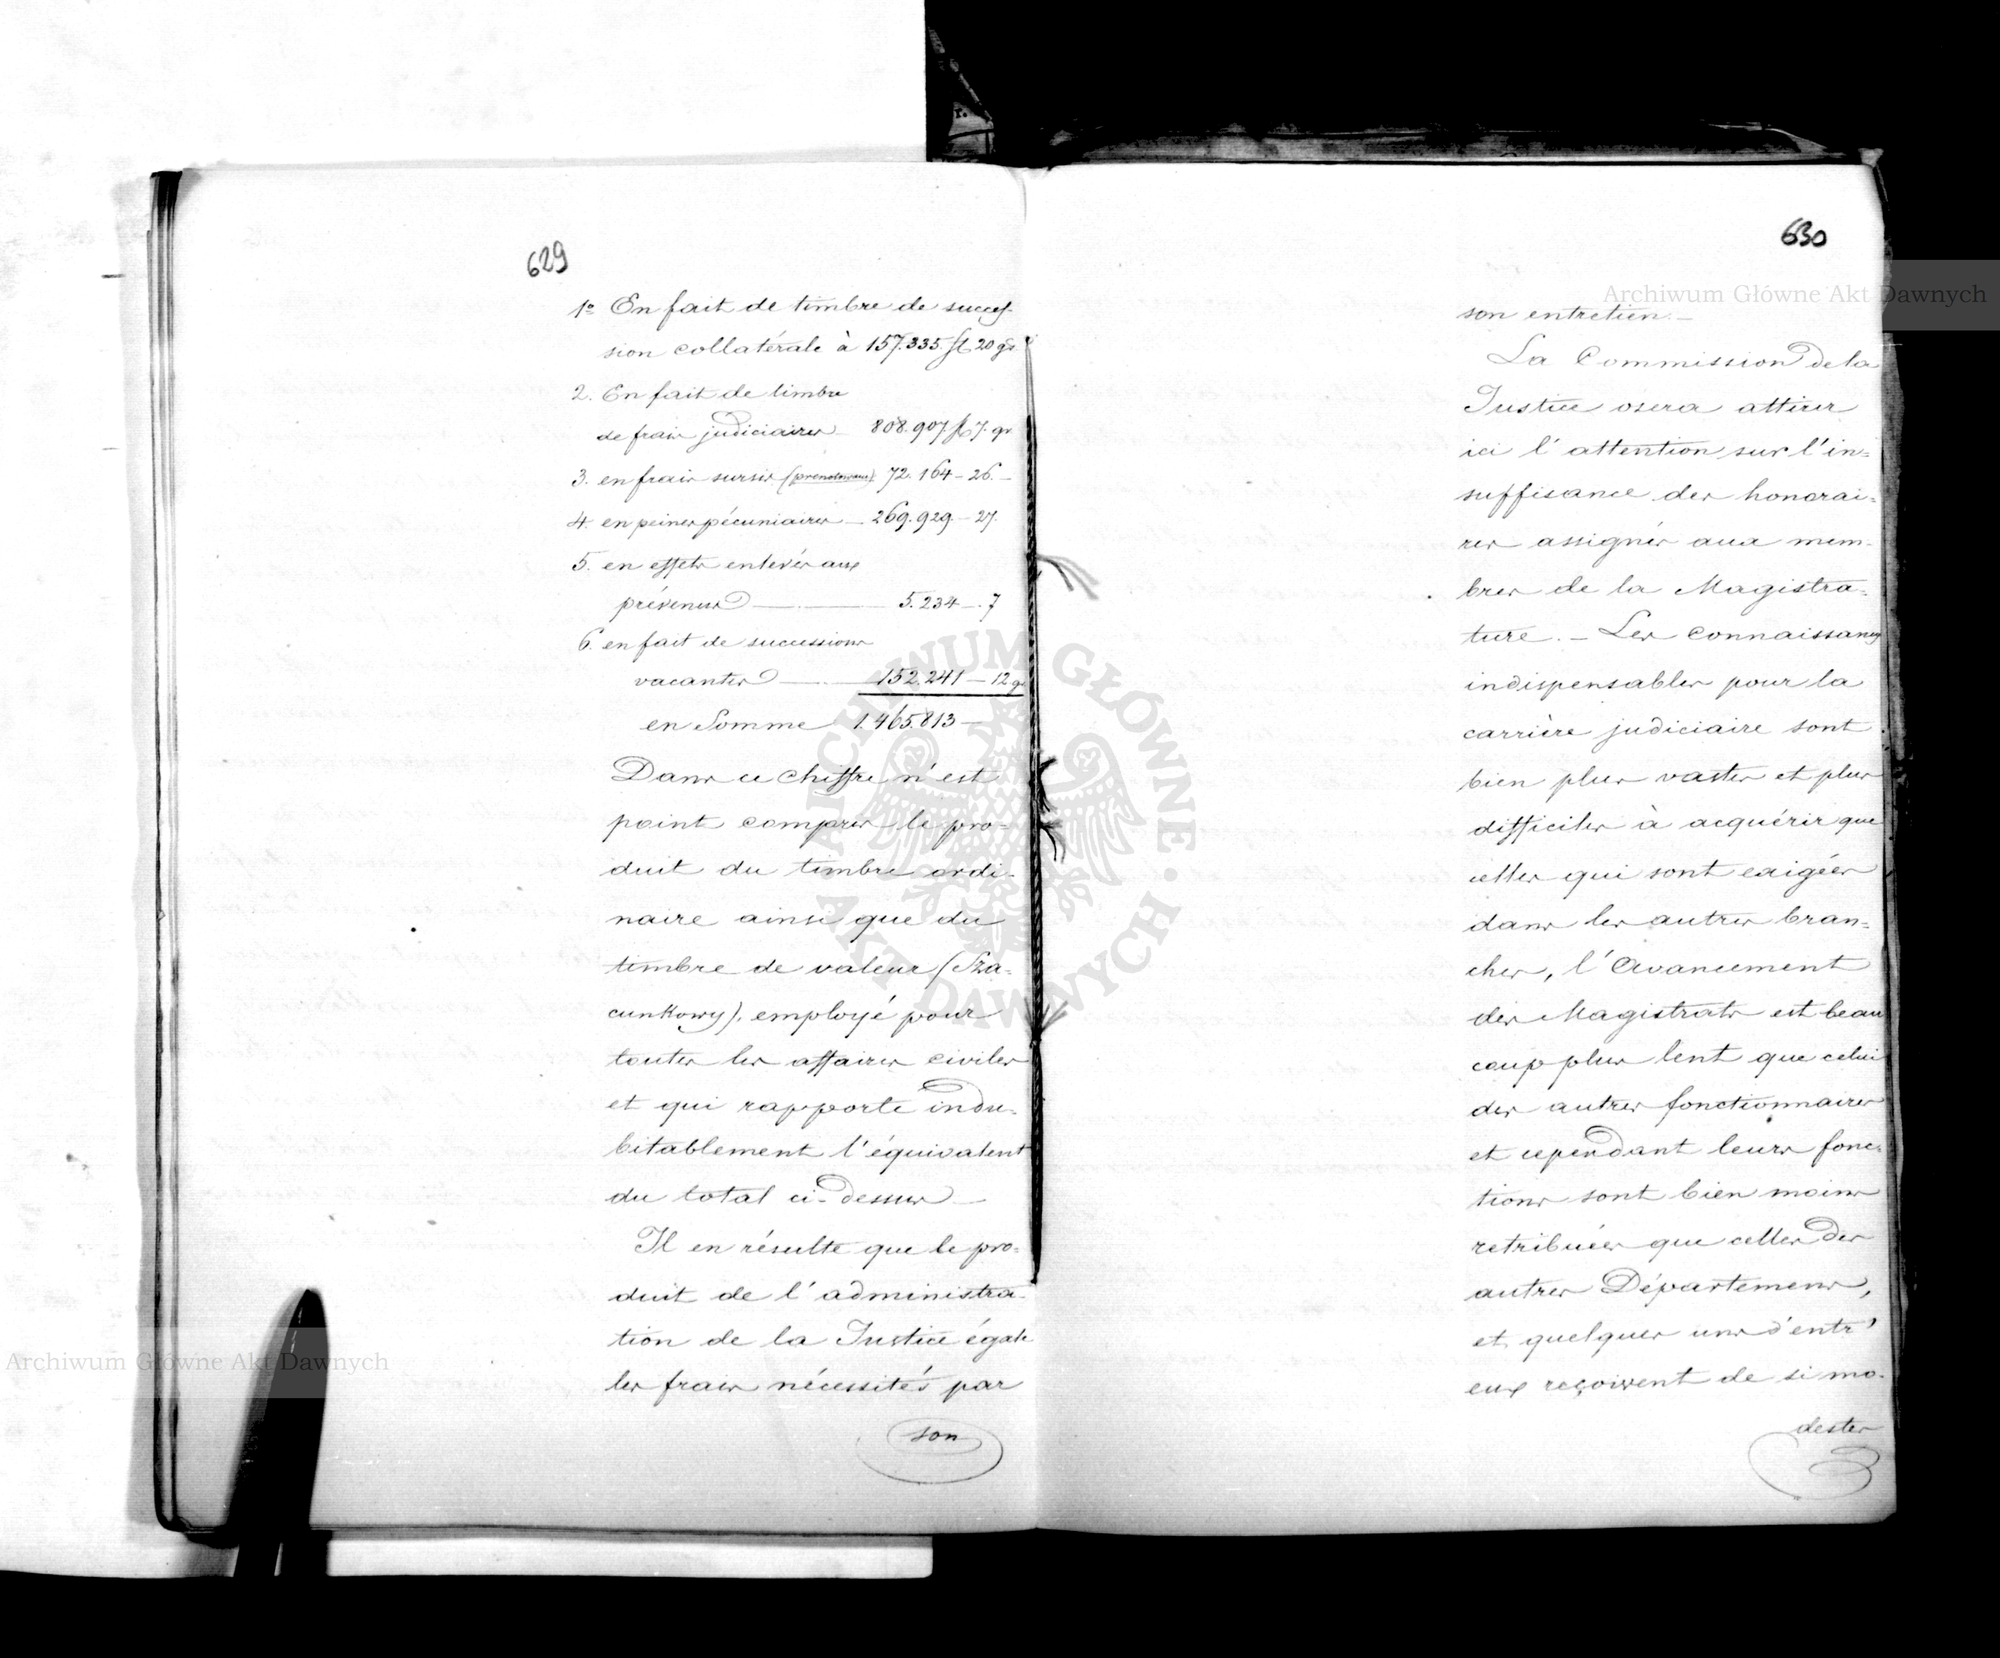 629
1º En fait de timbre de succes-
sion collatérale à 157.335 fl. 20 gs.
2. En fait de timbre
de frais judiciaires 808.907 fl. 7. gr
3. en frais sursis 72.164 – 26. –
4. en peines pécuniaires – 269.929 – 27.
5. en effets enlevés aux
prévenus — 5.234 – 7
6. en fait de successions
vacantes — 152.241 – 12 g.
en Somme 1.465.813 –
Dans ce chiffre n'est
point compris le pro-
duit du timbre ordi-
naire ainsi que du
timbre de valeur (Sza-
cunkowy), employé pour
toutes les affaires civiles
et qui rapporte indu-
bitablement l'équivalent
du total ci-dessus –
Il en résulte que le pro-
duit de l'administra-
tion de la Justice égale
les frais nécessités par
son
630
son entretien. –
La Commission de la
Justice osera attirer
ici l'attention sur l'in-
suffisance des honorai-
res assignés aux mem-
bres de la Magistra-
ture. – Les connaissances
indispensables pour la
carrière judiciaire sont
bien plus vastes et plus
difficiles à acquérir que
celles qui sont exigées
dans les autres bran-
ches, l'Avancement
des Magistrats est beau
coup plus lent que celui
des autres fonctionnaires
et cependant leurs fonc-
tions sont bien moins
retribuées que celles des
autres Départemens,
et quelques uns d'entr'
eux reçoivent de si mo-
destes
Archiwum Główne Akt Dawnych
Archiwum Główne Akt Dawnych
ARCHIWUM GŁÓWNE AKT DAWNYCH